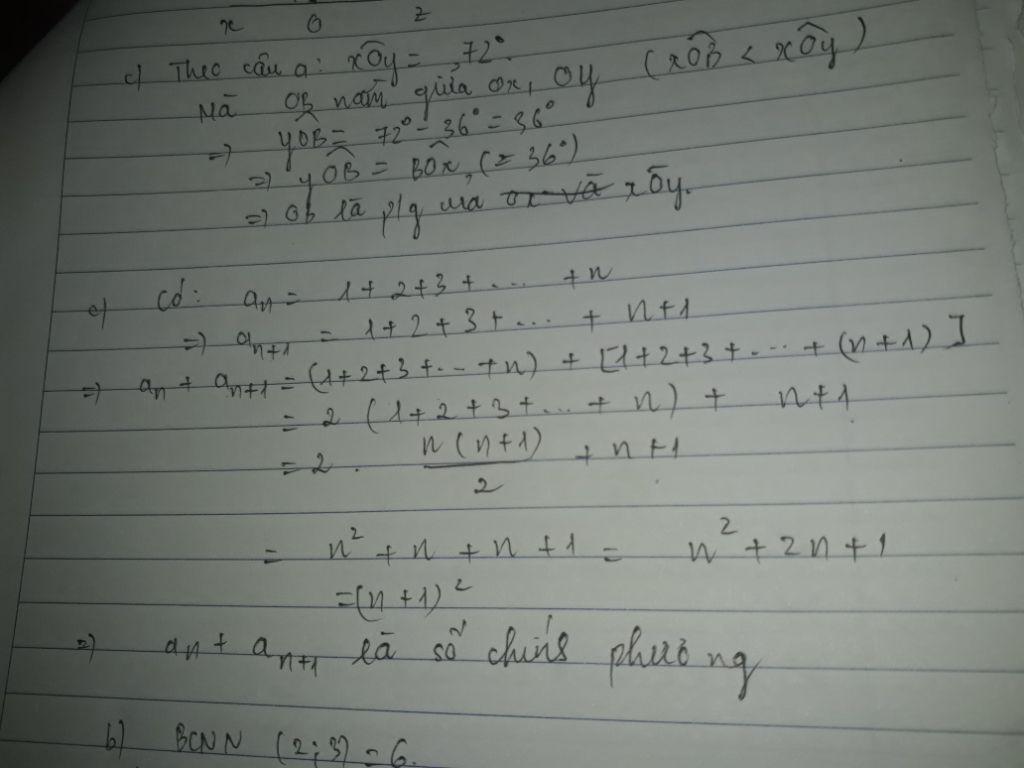 x O z
c) Theo câu a: xÔy = 72°.
Mà OB nằm giữa Ox, Oy (xÔB < xÔy)
=> yÔB = 72° - 36° = 36°
=> yÔB = BÔx, (= 36°)
=> Ob là p/g của xÔy.
c) Có: aₙ = 1+2+3+... +n
=> aₙ₊₁ = 1+2+3+... + n+1
=> aₙ + aₙ₊₁ = (1+2+3+...+n) + [1+2+3+...+(n+1)]
= 2 (1+2+3+...+ n) + n+1
= 2 . n(n+1)/2 + n+1
= n² + n + n + 1 = n² + 2n + 1
=(n+1)²
=> aₙ + aₙ₊₁ là số chính phương
b) BCNN (2;3) = 6.